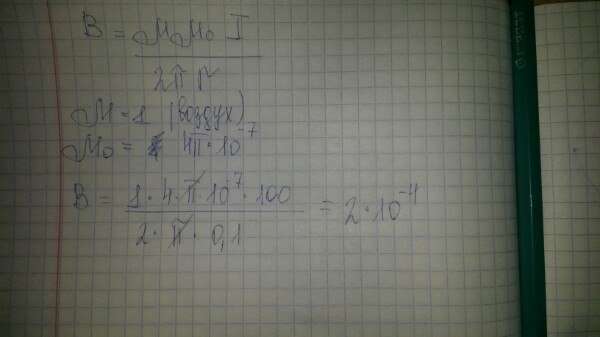 B = μμ₀ I / 2π r
μ = 1 (воздух)
μ₀ = 4π·10⁻⁷
B = 1·4·π·10⁻⁷·100 / 2·π·0,1 = 2·10⁻⁴